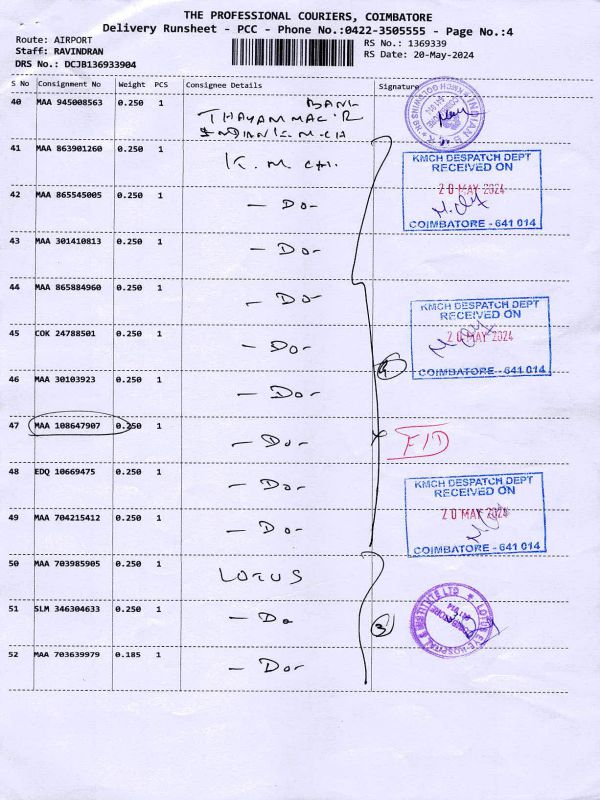 THE PROFESSIONAL COURIERS, COIMBATORE
Delivery Runsheet - PCC - Phone No.:0422-3505555 - Page No.:4
Route: AIRPORT
Staff: RAVINDRAN
DRS No.: DCJB136933904
RS No.: 1369339
RS Date: 20-May-2024
S No Consignment No Weight PCS Consignee Details Signature
40 MAA 945008563 0.250 1
BANK
INDIAN BANK
41 MAA 863901260 0.250 1 K.M.CH.
KMCH DESPATCH DEPT
RECEIVED ON
20 MAY 2024
COIMBATORE - 641 014
42 MAA 865545005 0.250 1 - Do -
43 MAA 301410813 0.250 1 - Do -
44 MAA 865884960 0.250 1 - Do -
KMCH DESPATCH DEPT
RECEIVED ON
20 MAY 2024
COIMBATORE - 641 014
45 COK 24788501 0.250 1 - Do -
46 MAA 30103923 0.250 1 - Do -
47 MAA 108647907 0.250 1 - Do -
FID
48 EDQ 10669475 0.250 1 - Do -
KMCH DESPATCH DEPT
RECEIVED ON
20 MAY 2024
COIMBATORE - 641 014
49 MAA 704215412 0.250 1 - Do -
50 MAA 703985905 0.250 1 LOTUS
51 SLM 346304633 0.250 1 - Do
3
52 MAA 703639979 0.185 1 - Do -